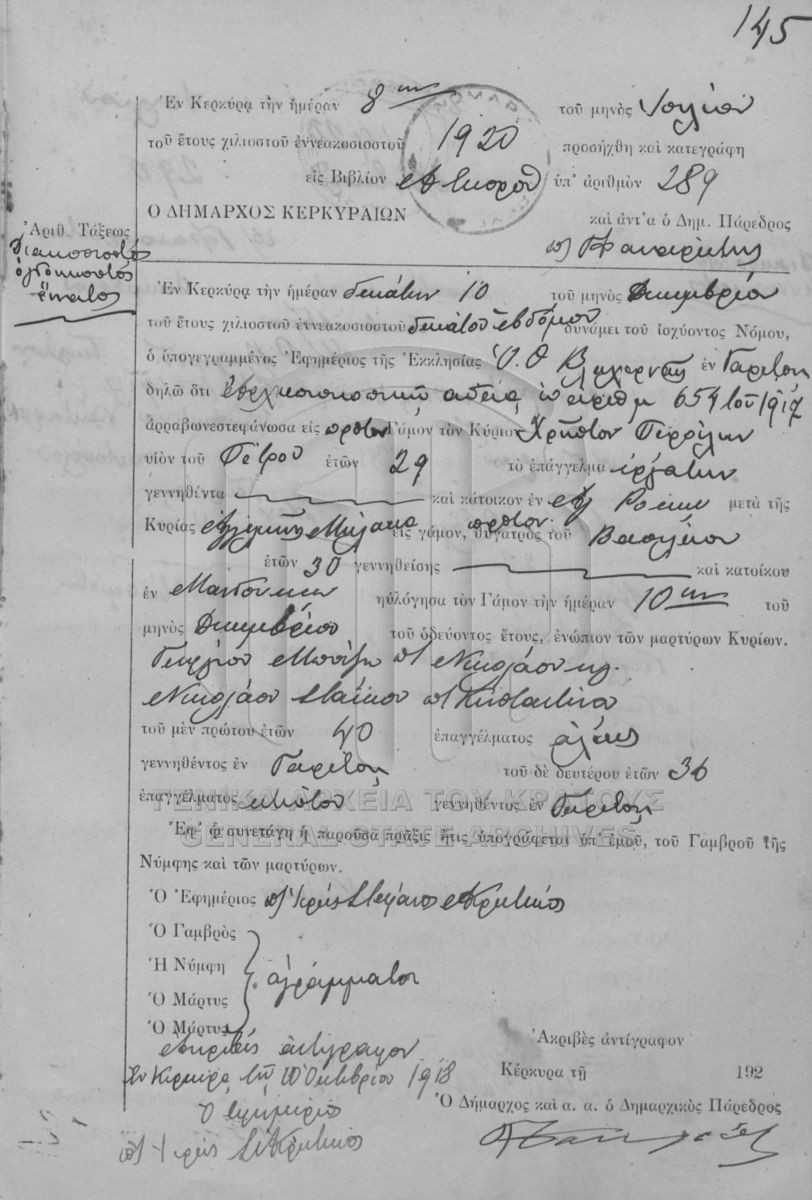 145
Ἐν Κερκύρᾳ τὴν ἡμέραν 8ην τοῦ μηνὸς Ἰουλίου
τοῦ ἔτους χιλιοστοῦ ἐννεακοσιοστοῦ 1920 προσήχθη καὶ κατεγράφη
εἰς Βιβλίον ὑπ' ἀριθμὸν 289
Ο ΔΗΜΑΡΧΟΣ ΚΕΡΚΥΡΑΙΩΝ καὶ ἀντ'α ὁ Δημ. Πάρεδρος
Ἀριθ. Τάξεως
Διακοσιοστός
ὀγδοηκοστός
ἔνατος
Ἐν Κερκύρᾳ τὴν ἡμέραν δεκάτην 10 τοῦ μηνὸς Δεκεμβρίου
τοῦ ἔτους χιλιοστοῦ ἐννεακοσιοστοῦ δεκάτου ἑβδόμου δυνάμει τοῦ ἰσχύοντος Νόμου,
ὁ ὑπογεγραμμένος Ἐφημέριος τῆς Ἐκκλησίας Ὑ. Θ Βλαχερνῆς ἐν Γαρίτσῃ
δηλῶ ὅτι ἀδείᾳ ὑπ' ἀριθμ 654 τοῦ 1917
ἀρραβωνεστεφάνωσα εἰς πρῶτον Γάμον τὸν Κύριον Χρῆστον
υἱὸν τοῦ Πέτρου ἐτῶν 29 τὸ ἐπάγγελμα ἐργάτην
γεννηθέντα καὶ κάτοικον ἐν Ἁγ Ρόκκῳ μετὰ τῆς
Κυρίας πρῶτον εἰς γάμον, θυγατρὸς τοῦ Βασιλείου
ἐτῶν 30 γεννηθείσης καὶ κατοίκου
ἐν Μαντούκιῳ ηὐλόγησα τὸν Γάμον τὴν ἡμέραν 10ην τοῦ
μηνὸς Δεκεμβρίου τοῦ ὁδεύοντος ἔτους, ἐνώπιον τῶν μαρτύρων Κυρίων.
Γεωργίου Νικολάου κ.
Νικολάου Κωσταντίνου
τοῦ μὲν πρώτου ἐτῶν 40 ἐπαγγέλματος
γεννηθέντος ἐν Γαρίτσῃ τοῦ δὲ δευτέρου ἐτῶν 36
ἐπαγγέλματος γεννηθέντος ἐν Γαρίτσῃ
ΓΕΝΙΚΑ ΑΡΧΕΙΑ ΤΟΥ ΚΡΑΤΟΥΣ
GENERAL STATE ARCHIVES
Ἐφ' ᾧ συνετάγη ἡ παροῦσα πρᾶξις ἥτις ὑπογράφεται ὑπ' ἐμοῦ, τοῦ Γαμβροῦ τῆς
Νύμφης καὶ τῶν μαρτύρων.
Ὁ Ἐφημέριος
Ὁ Γαμβρὸς
Ἡ Νύμφη ἀγράμματοι
Ὁ Μάρτυς
Ὁ Μάρτυς
Ἀκριβὲς ἀντίγραφον
Ἐν Κερκύρᾳ τῇ 10 Ὀκτωβρίου 1918
Ὁ ἐφημέριος
Ἀκριβὲς ἀντίγραφον
Κέρκυρα τῇ 192
Ὁ Δήμαρχος καὶ α. α. ὁ Δημαρχικὸς Πάρεδρος